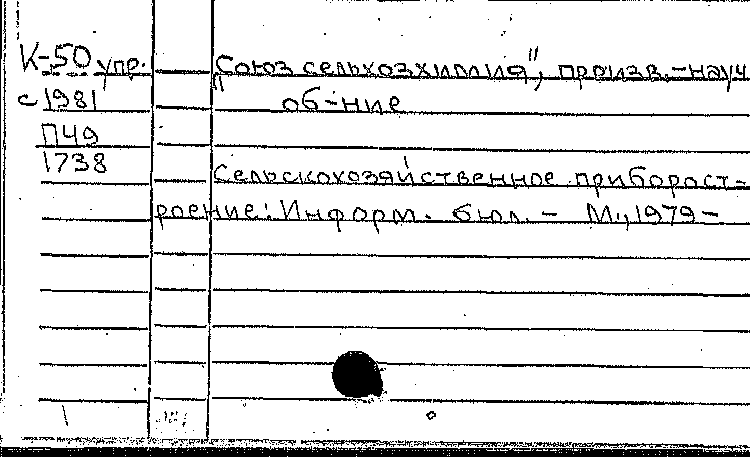 К-50 упр. "Союз сельхозхимия", произв.-науч
с 1981 об-ние
П49
1738 Сельскохозяйственное приборост-
роение: Информ. бюл. - М., 1979-